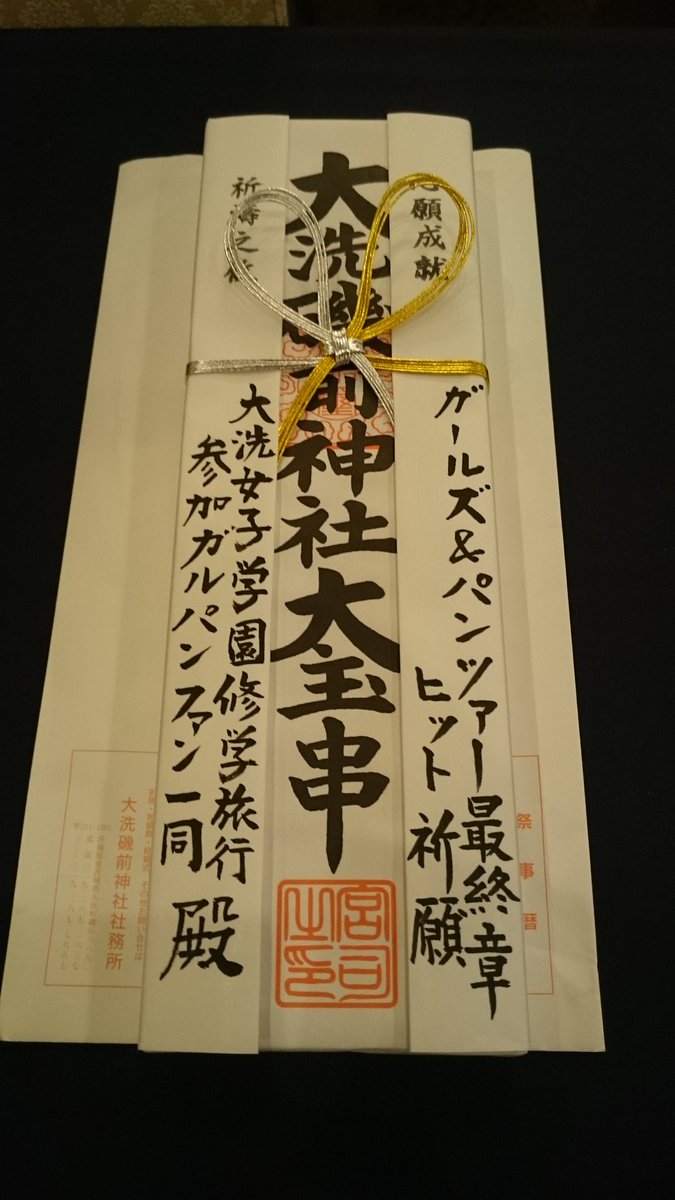 心願成就
ガールズ&パンツァー最終章
ヒット祈願
大洗磯前神社大玉串
宮司之印
祈祷之攸
大洗女子学園修学旅行
参加ガルパンファン一同殿
祭事暦
大洗磯前神社社務所